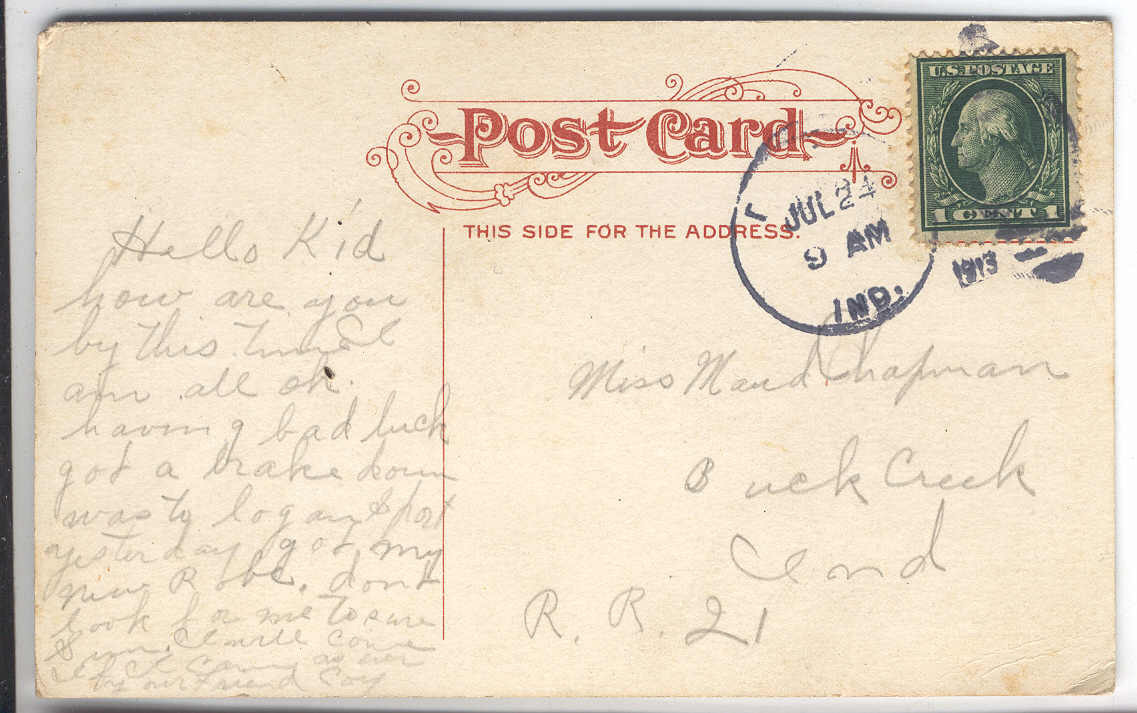 Post Card
THIS SIDE FOR THE ADDRESS.
U.S. POSTAGE
1 CENT 1
JUL 24
9 AM
IND.
1913
Hello Kid
how are you
by this time I
am all ok.
having bad luck
got a brake down
was to logansport
yesterday got my
new Robe. dont
look for me to sure
Sun. I will come
if I can as ever
by our friend Coy
Miss Maud Chapman
Buck Creek
Ind
R. R. 21